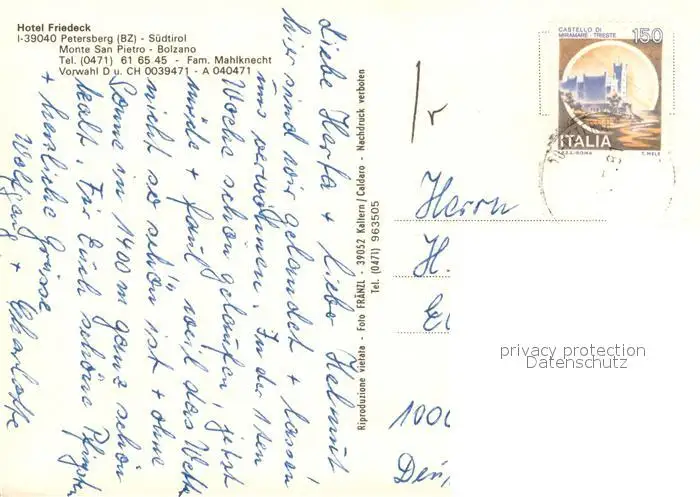 Hotel Friedeck
I-39040 Petersberg (BZ) - Südtirol
Monte San Pietro - Bolzano
Tel. (0471) 61 65 45 - Fam. Mahlknecht
Vorwahl D u. CH 0039471 - A 040471
Liebe Herta + lieber Helmut
hier sind wir gelandet + lassen
uns verwöhnen. In der 1ten
Woche schön gelaufen, jetzt
müde + faul weil das Wetter
nicht so schön ist + ohne
Sonne in 1400 m ganz schön
kalt. Für Euch schöne Pfingsten
+ herzliche Grüsse
Wolfgang + Charlotte
Riproduzione vietata - Foto FRÄNZL - 39052 Kaltern / Caldaro - Nachdruck verboten
Tel. (0471) 963505
CASTELLO DI
MIRAMARE - TRIESTE
150
ITALIA
I.P.Z.S. ROMA
T. MELE
Herrn
H.
privacy protection
Datenschutz